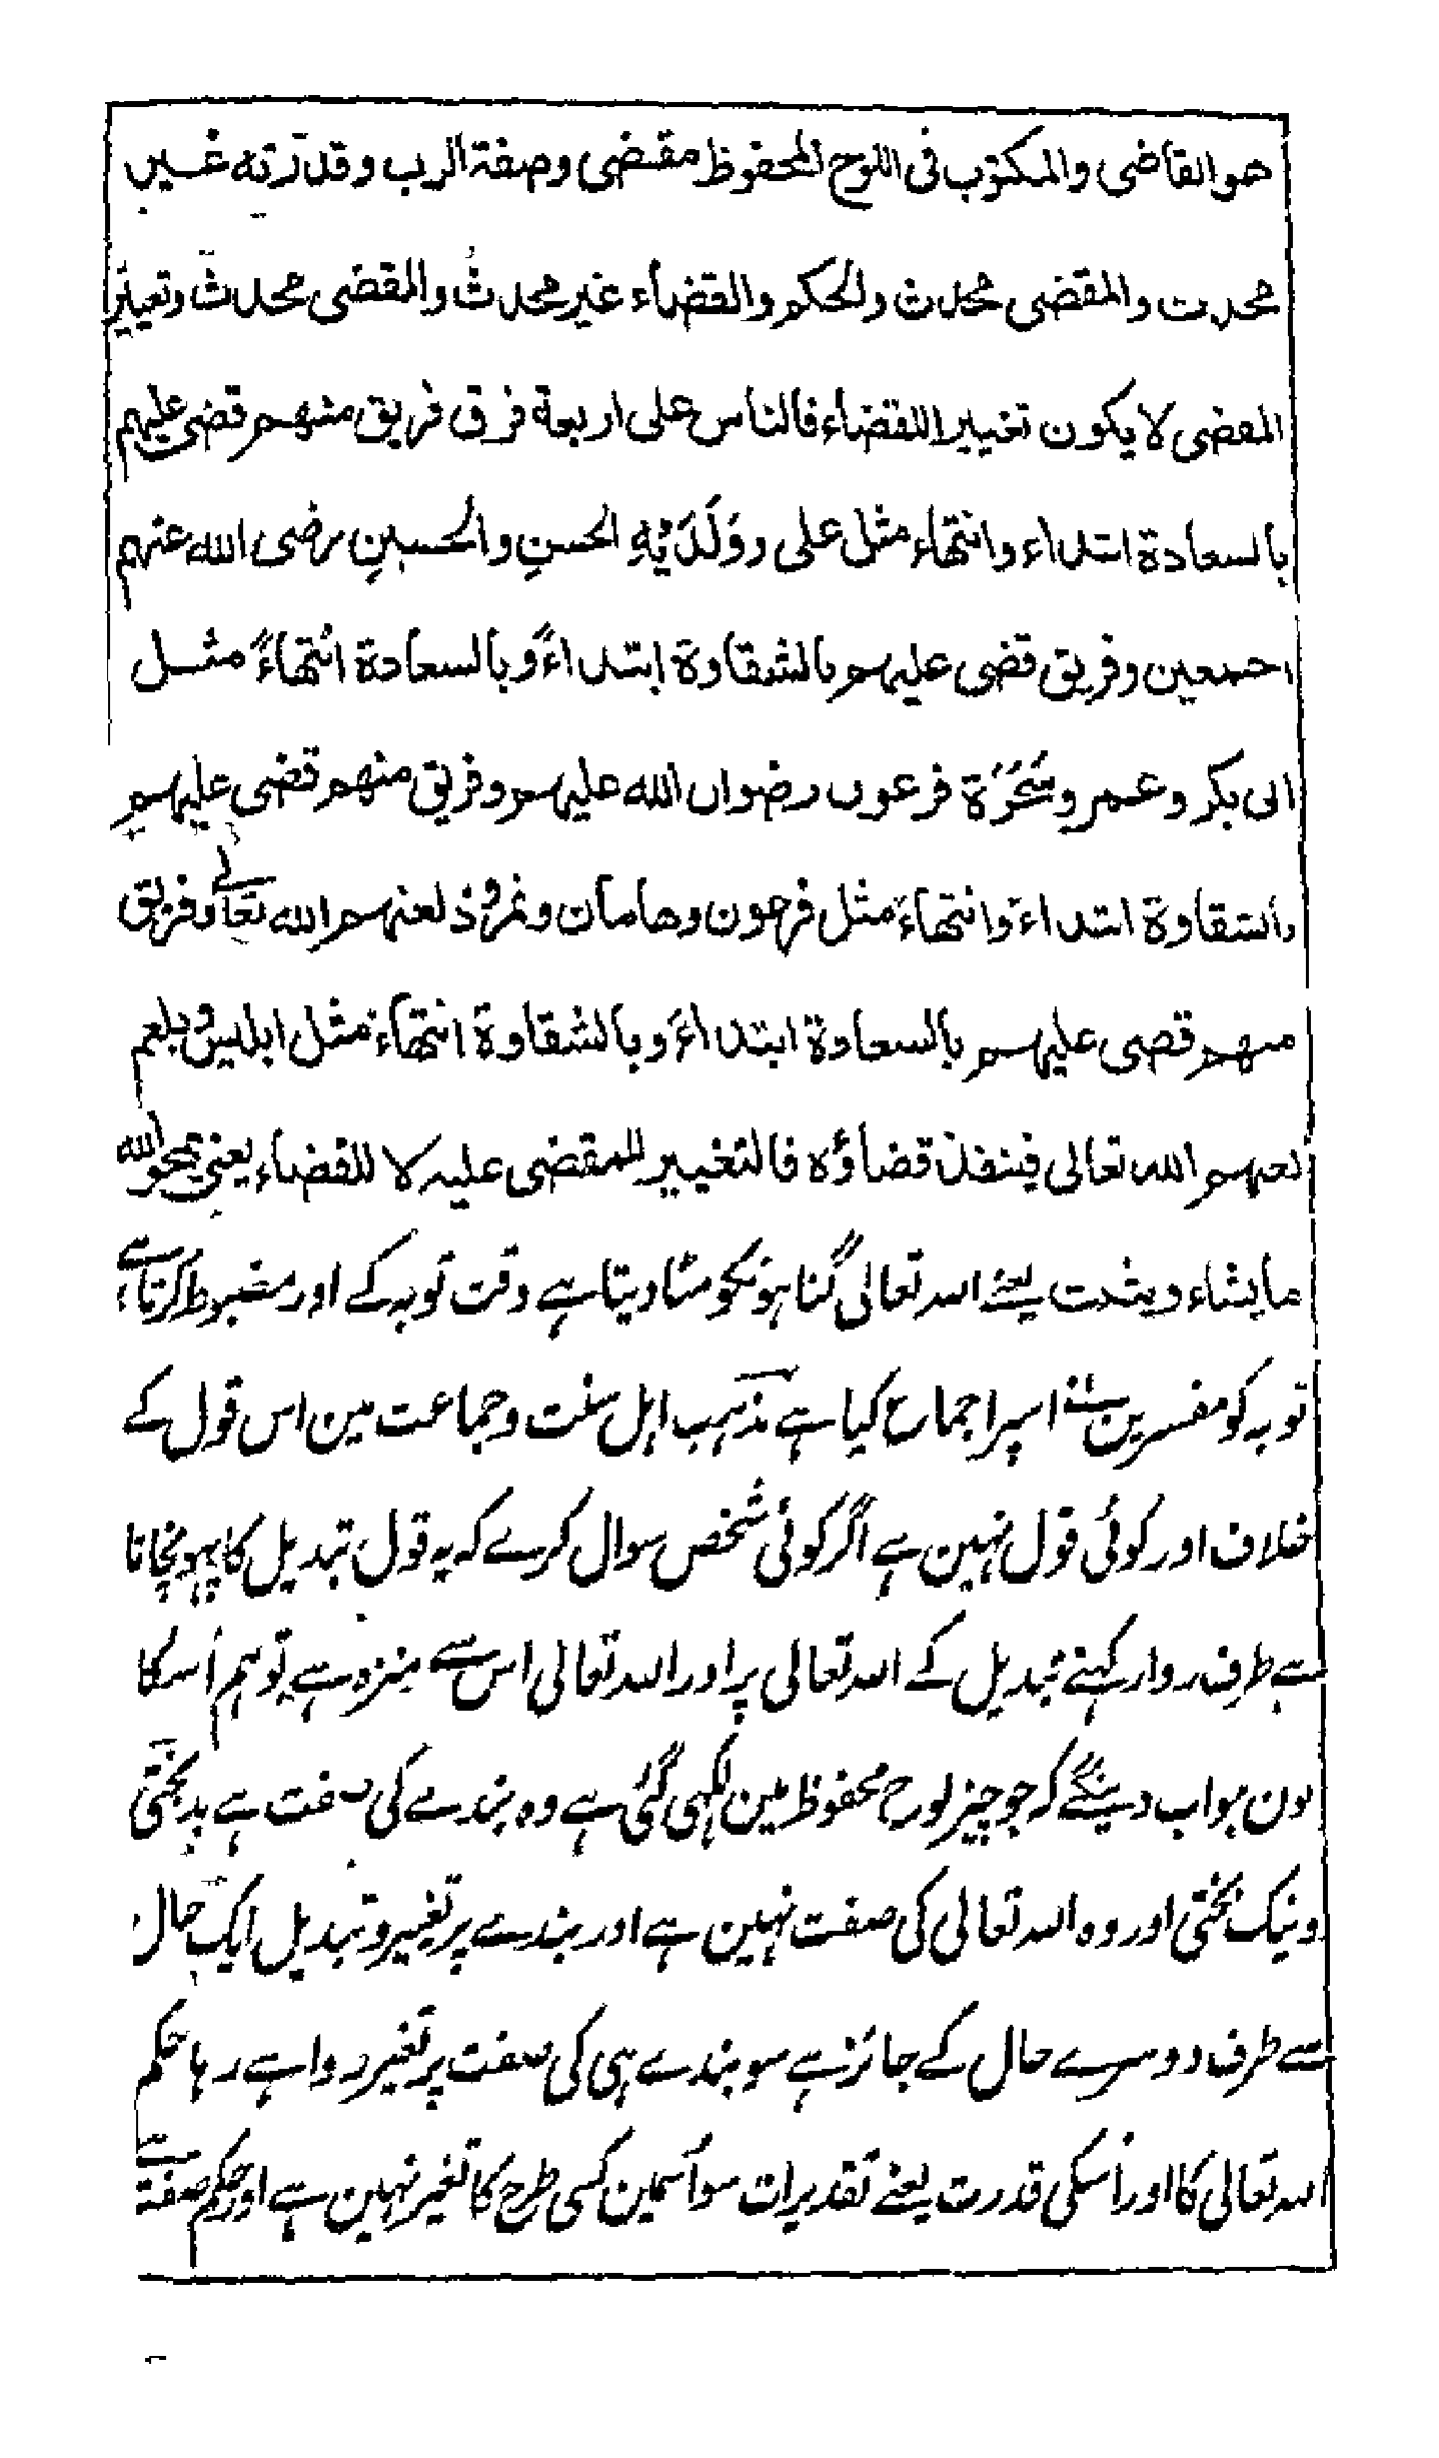 هو القاضی والمکتوب فی اللوح المحفوظ مقضی وصفة الرب وقدرته غیر
محدث والمقضی محدث والحکم والقضاء غیر محدث والمقضی محدث وتغییر
المقضی لا یکون تغییر القضاء فالناس علی اربعة فرق فریق منهم قضی علیهم
بالسعادة ابتداء وانتهاء مثل علی و وَلَدَیْهِ الحسنِ والحسینِ رضی الله عنهم
اجمعین وفریق قضی علیهم بالشقاوة ابتداءً وبالسعادة انتهاءً مثل
ابی بکر وعمر وسَحَرَة فرعون رضوان الله علیهم وفریق منهم قضی علیهم
بالشقاوة ابتداء وانتهاء مثل فرعون وهامان ونمروذ لعنهم الله تعالے وفریق
منهم قضی علیهم بالسعادة ابتداءً وبالشقاوة انتهاء مثل ابلیس وبلعم
لعنهم الله تعالی فینفذ قضاؤه فالتغییر للمقضی علیه لا للقضاء یعنی یمحو الله
ما یشاء ویثبت یعنے اللہ تعالی گناہونکو مٹا دیتا ہے وقت توبہ کے اور مضبوط کرتا ہے
توبہ کو مفسرین نے اسپر اجماع کیا ہے مذہب اہل سنت وجماعت مین اس قول کے
خلاف اور کوئی قول نہین ہے اگر کوئی شخص سوال کرے کہ یہ قول تبدیل کا پہونچانا
ہے طرف روا رکہنے تبدیل کے اللہ تعالی پر اور اللہ تعالی اس سے منزہ ہے تو ہم اُسکا
یون جواب دینگے کہ جو چیز لوح محفوظ مین لکہی گئی ہے وہ بندے کی صفت ہے بدبختی
ونیک بختی اور وہ اللہ تعالی کی صفت نہین ہے اور بندے پر تغییر وتبدیل ایک حال
سے طرف دوسرے حال کے جائز ہے سو بندے ہی کی صفت پر تغیر روا ہے رہا حکم
اللہ تعالی کا اور اُسکی قدرت یعنے تقدیرات سو اُسمین کسی طرح کا تغیر نہین ہے اور حکم صفة ہے